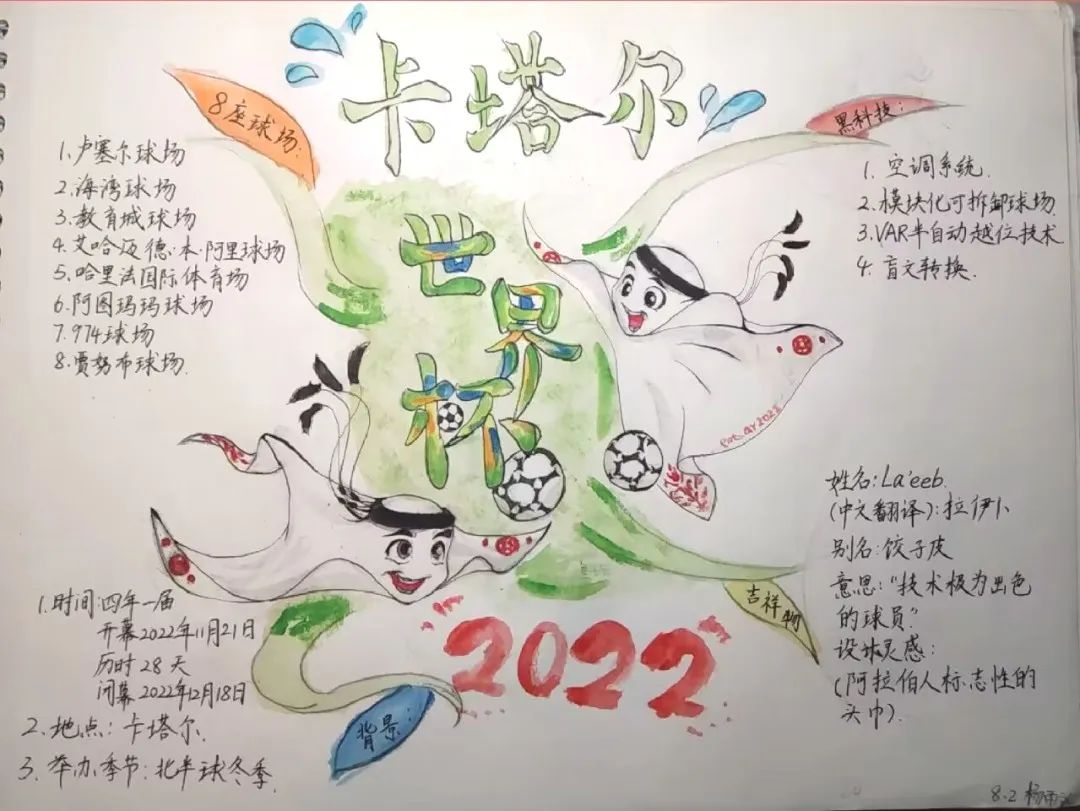 卡塔尔
世界杯
2022
8座球场:
1.卢塞尔球场
2.海湾球场
3.教育城球场
4.艾哈迈德·本·阿里球场
5.哈里法国际体育场
6.阿图玛玛球场
7.974球场
8.贾努布球场.
黑科技:
1.空调系统.
2.模块化可拆卸球场.
3.VAR半自动越位技术
4.盲文转换.
吉祥物
姓名:La'eeb.
(中文翻译):拉伊卜
别名:饺子皮
意思:"技术极为出色
的球员"
设计灵感:
(阿拉伯人标志性的
头巾).
背景:
1.时间:四年一届
开幕2022年11月21日
历时28天
闭幕2022年12月18日
2.地点:卡塔尔.
3.举办季节:北半球冬季.
8.2 杨雨